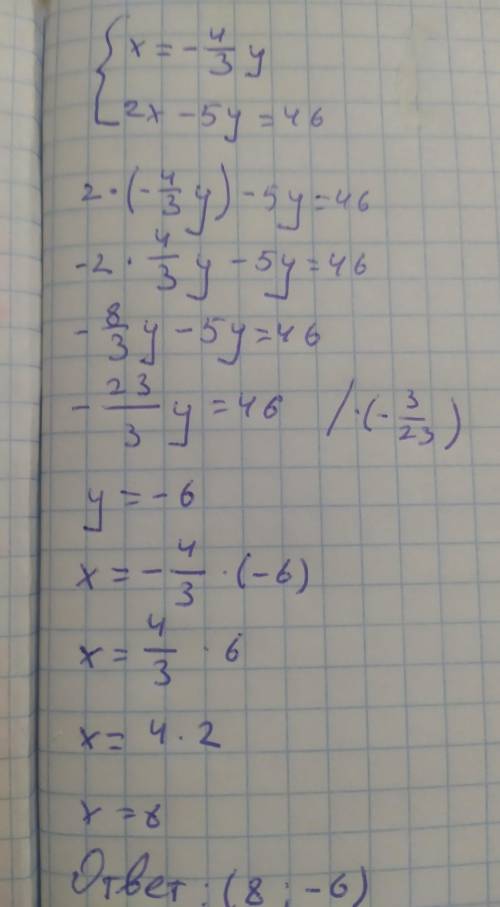 { x = -4/3 y
2x - 5y = 46
2 · (-4/3 y) - 5y = 46
-2 · 4/3 y - 5y = 46
-8/3 y - 5y = 46
-23/3 y = 46 / · (-3/23)
y = -6
x = -4/3 · (-6)
x = 4/3 · 6
x = 4 · 2
x = 8
Ответ: (8 ; -6)